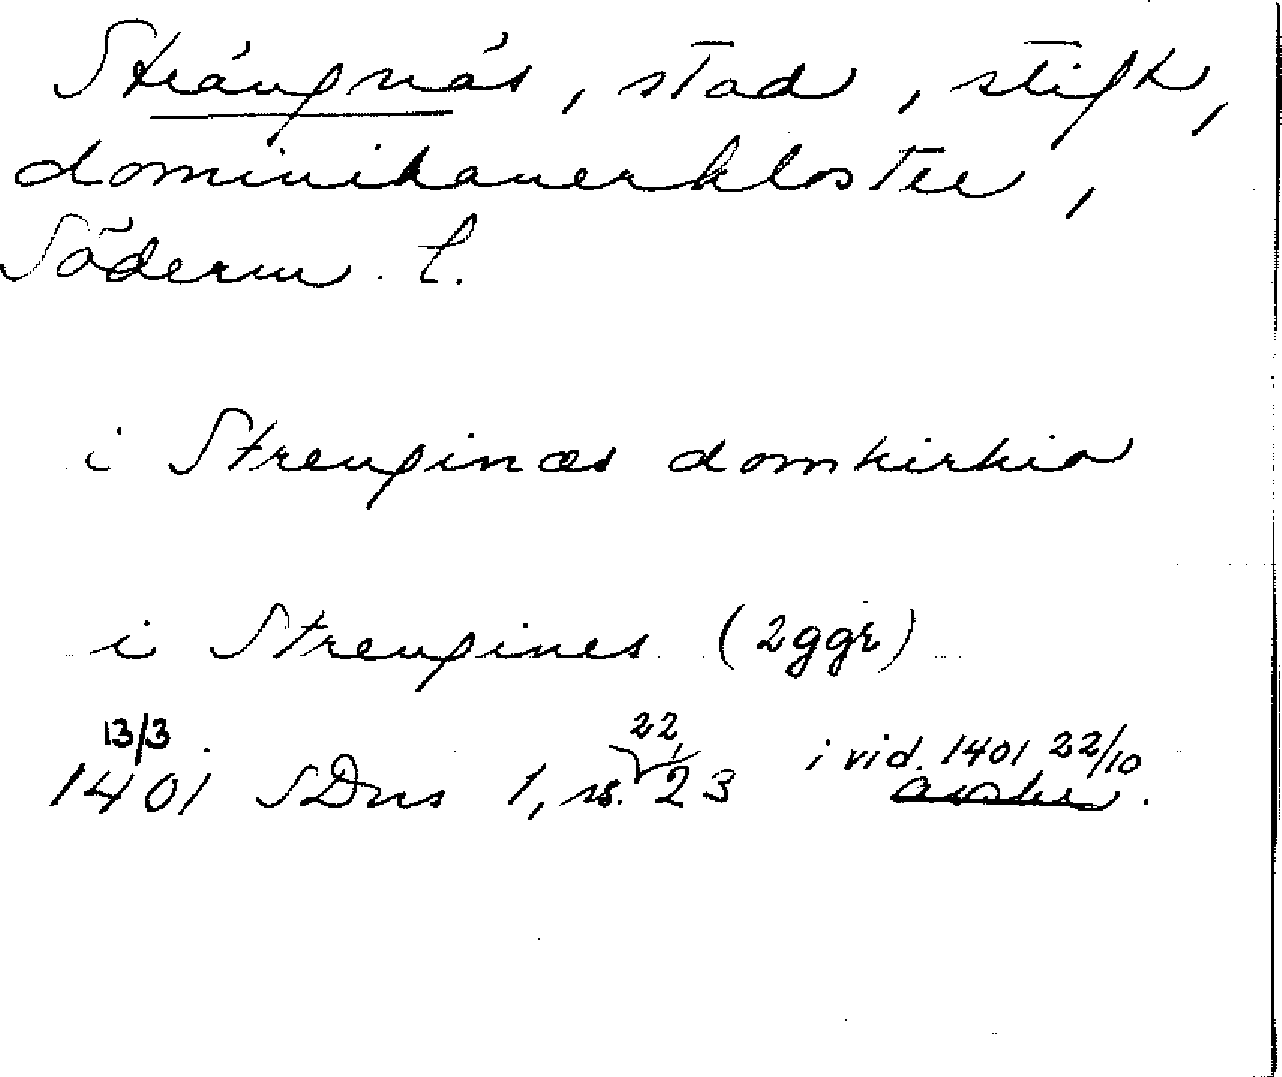 Strängnäs, stad, stift,
dominikanerkloster,
Söderm. l.
i Strenginæs domkirkio
i Strengines (2ggr)
13/3
1401 SDns 1, s. 22, 23 i vid. 1401 22/10
avskr.